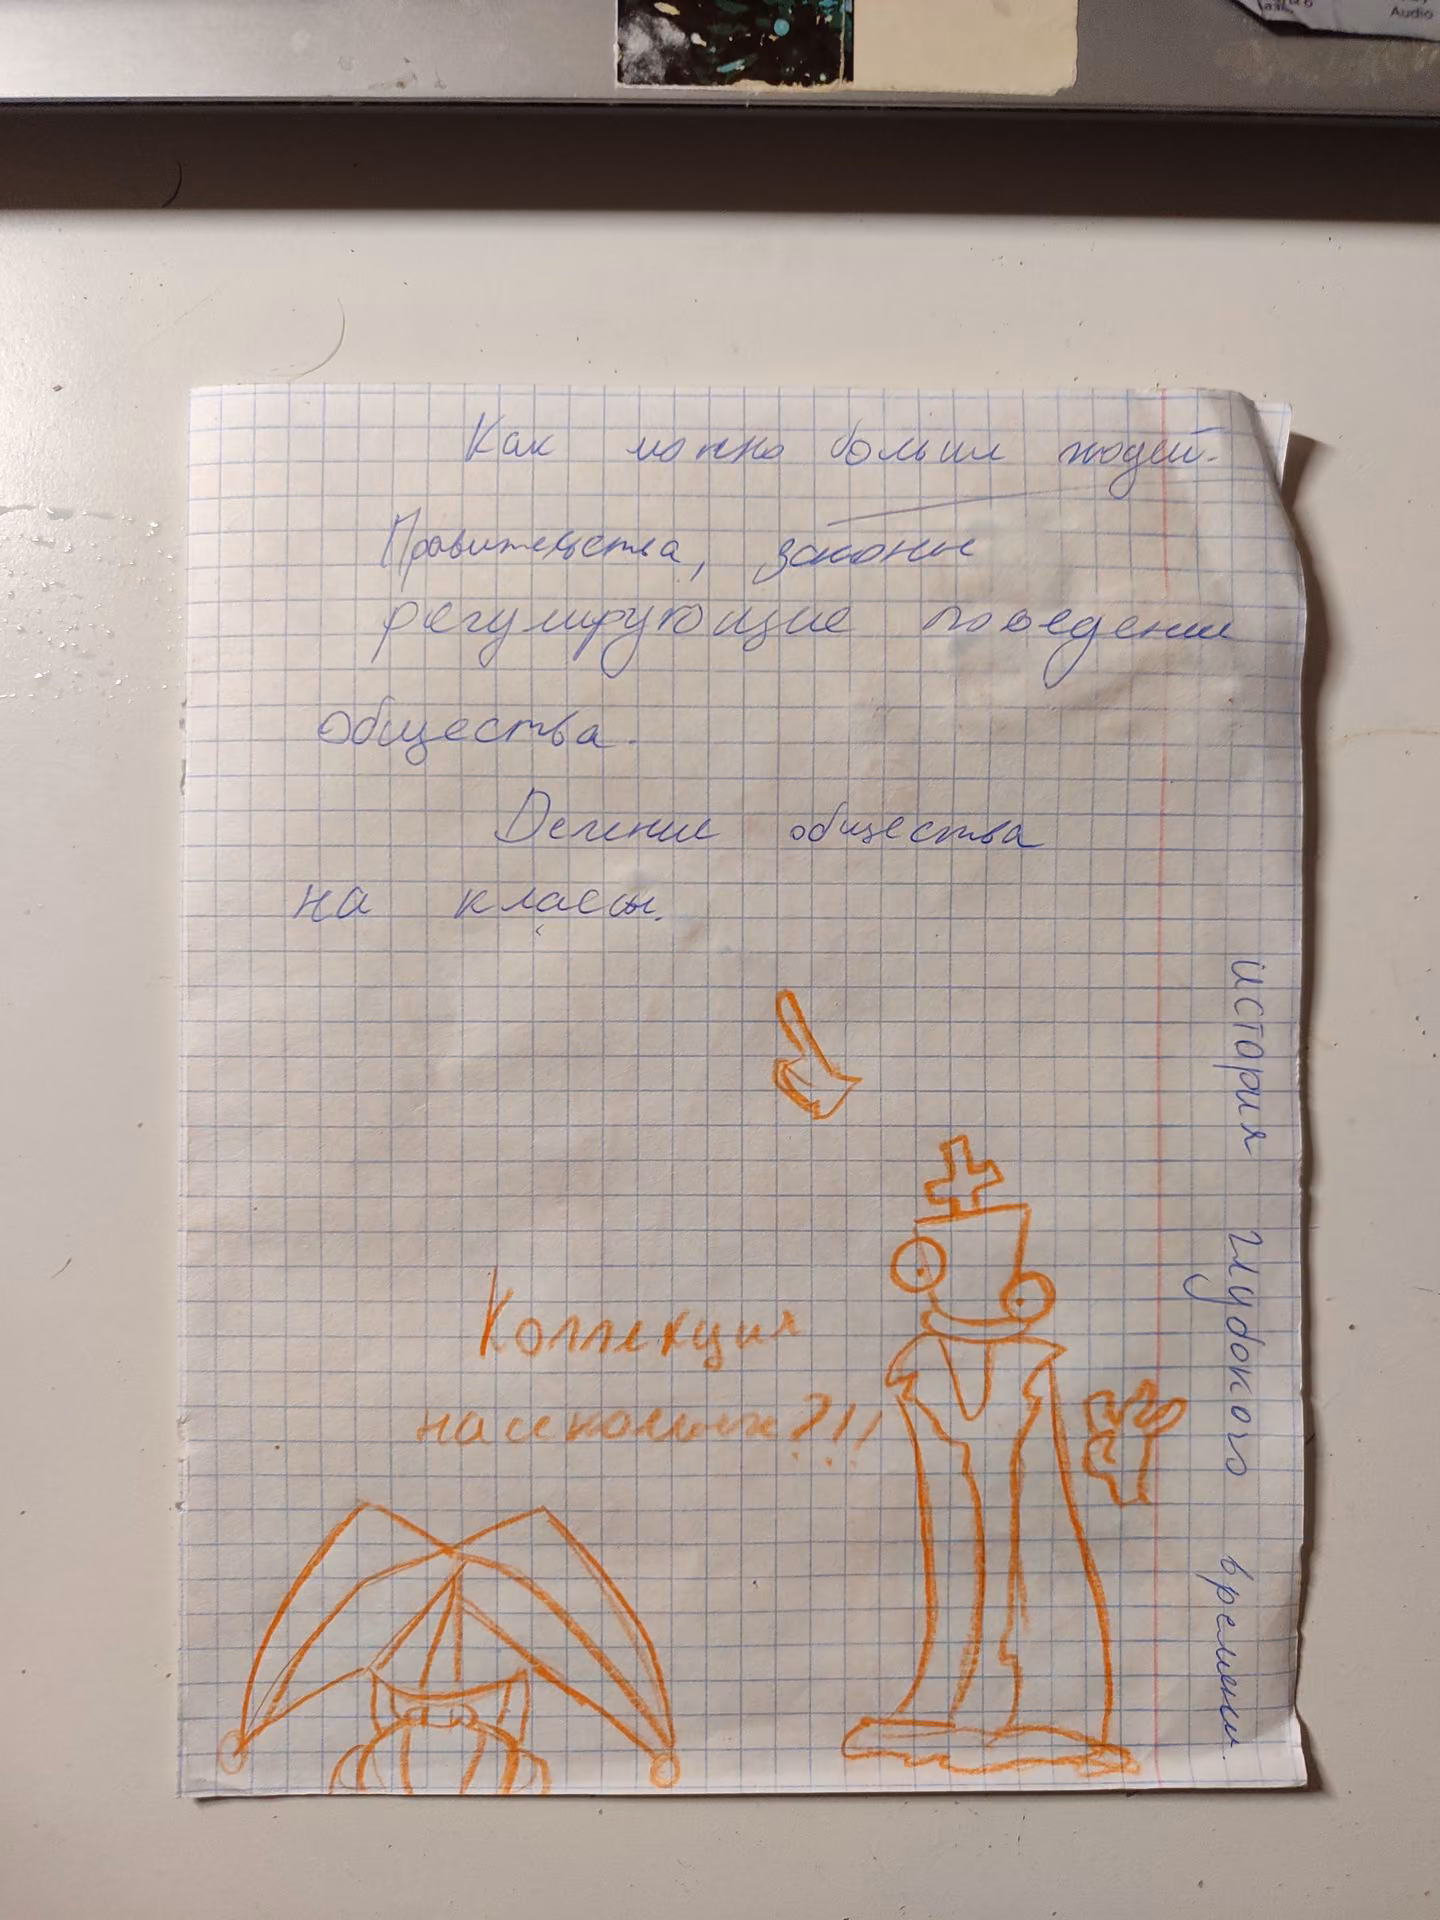 Audio
Как можно больше людей.
Правительства, законы
регулирующие поведение
общества.
Деление общества
на классы.
Коллекция
насекомых?!!
история глубокого времени.